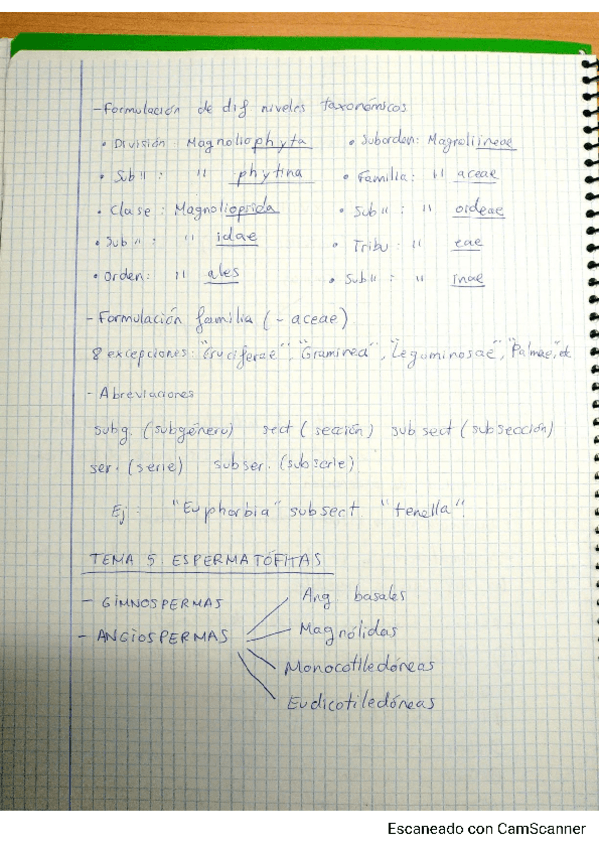 - Formulación de dif niveles taxonómicos
• División: Magnoliophyta
• Sub 11 : 11 phytina
• Clase: Magnolioprida
• Sub 11 : 11 idae
• Orden: 11 ales
• Suborden: Magnoliineae
• Familia: 11 aceae
• Sub 11 : 11 oideae
• Tribu: 11 eae
• Sub 11 : 11 inae
- Formulación familia (- aceae)
8 excepciones: "Cruciferae", "Graminea", "Leguminosae", "Palmae", etc
- Abreviaciones
subg. (subgénero) sect (sección) subsect (subsección)
ser. (serie) subser. (subserie)
Ej: "Euphorbia" subsect "tenella".
TEMA 5. ESPERMATÓFITAS
- GIMNOSPERMAS
- ANGIOSPERMAS
Ang basales
Magnólidas
Monocotiledóneas
Eudicotiledóneas
Escaneado con CamScanner